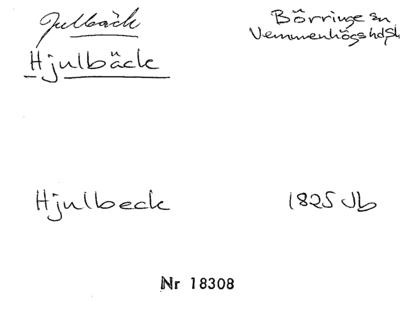 Julbäck
Börringe sn
Hjulbäck
Vemmenhögs hd, Sk
Hjulbeck
1825 Jb
Nr 18308